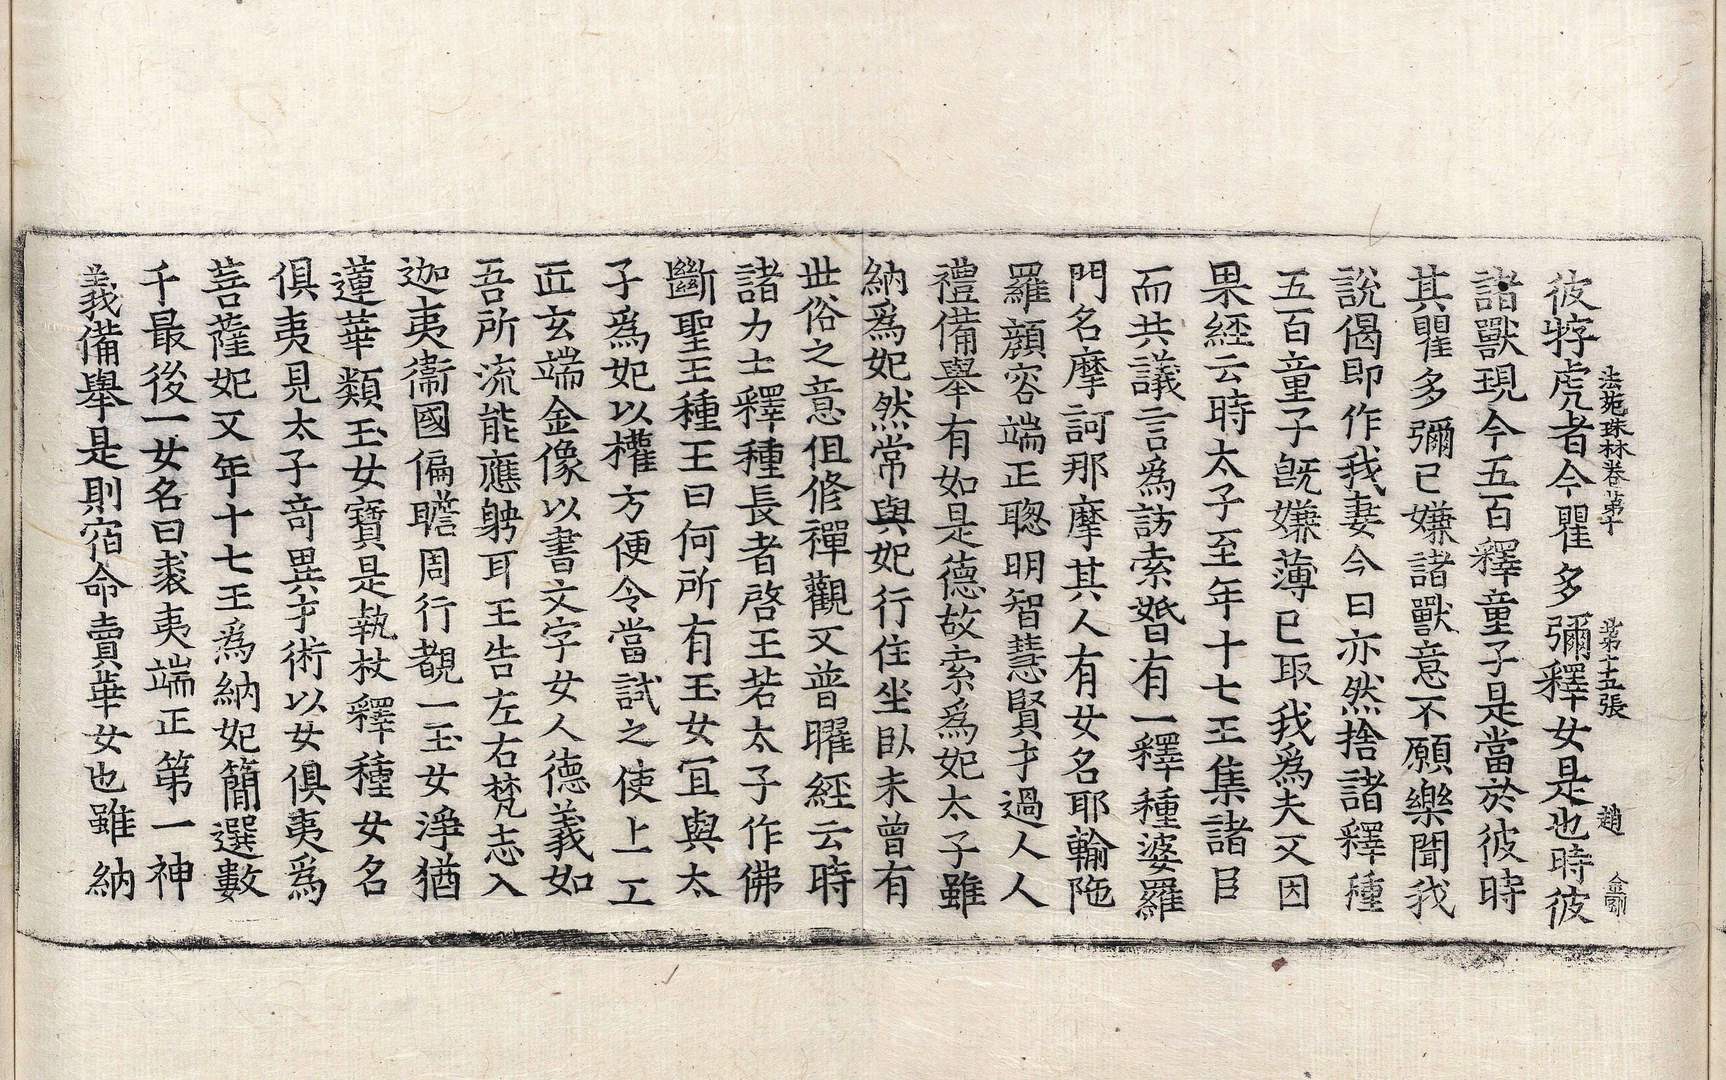 法苑珠林卷第十　第十五張　趙　金𠛬
彼牸虎者今瞿多彌釋女是也時彼
諸獸現今五百釋童子是當於彼時
其瞿多彌已嫌諸獸意不願樂聞我
說偈即作我妻今日亦然捨諸釋種
五百童子旣嫌薄已取我爲夫又因
果經云時太子至年十七王集諸臣
而共議言爲訪索婚有一釋種婆羅
門名摩訶那摩其人有女名耶輸陁
羅顔容端正聦明智慧賢才過人人
禮備舉有如是德故索爲妃太子雖
納爲妃然常與妃行住坐臥未曾有
丗俗之意但修禪觀又普曜經云時
諸力士釋種長者啓王若太子作佛
斷聖王種王曰何所有玉女冝與太
子爲妃以權方便令當試之使上工
匠玄端金像以書文字女人德義如
吾所流能應娉耳王告左右梵志入
迦夷衞國偏瞻周行覩一玉女淨猶
蓮華類玉女寶是執杖釋種女名
俱夷見太子竒異才術以女俱夷爲
菩薩妃又年十七王爲納妃簡選數
千最後一女名曰裘夷端正第一神
義備舉是則宿命賣華女也雖納